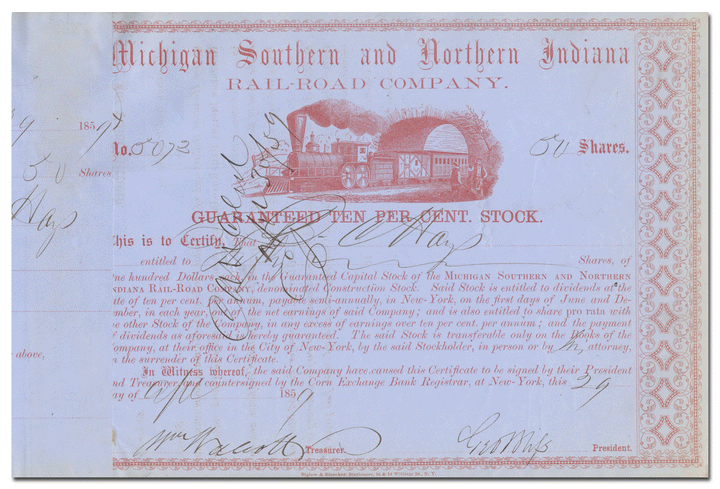 Michigan Southern and Northern Indiana
RAIL-ROAD COMPANY.
9 1859
No. 5073
50 Shares.
50 Shares
Hays
GUARANTEED TEN PER CENT. STOCK.
This is to Certify, That W Hays
entitled to Shares, of
One hundred Dollars each in the Guaranteed Capital Stock of the MICHIGAN SOUTHERN AND NORTHERN
INDIANA RAIL-ROAD COMPANY, denominated Construction Stock. Said Stock is entitled to dividends at the
rate of ten per cent. per annum, payable semi-annually, in New-York, on the first days of June and De-
cember, in each year, out of the net earnings of said Company; and is also entitled to share pro rata with
the other Stock of the Company, in any excess of earnings over ten per cent. per annum; and the payment
of dividends as aforesaid is hereby guaranteed. The said Stock is transferable only on the Books of the
Company, at their office in the City of New-York, by the said Stockholder, in person or by attorney,
on the surrender of this Certificate.
above,
In Witness whereof, the said Company have caused this Certificate to be signed by their President
and Treasurer, and countersigned by the Corn Exchange Bank Registrar, at New-York, this 29
day of Apl 1859
Treasurer.
President.
Cancelled